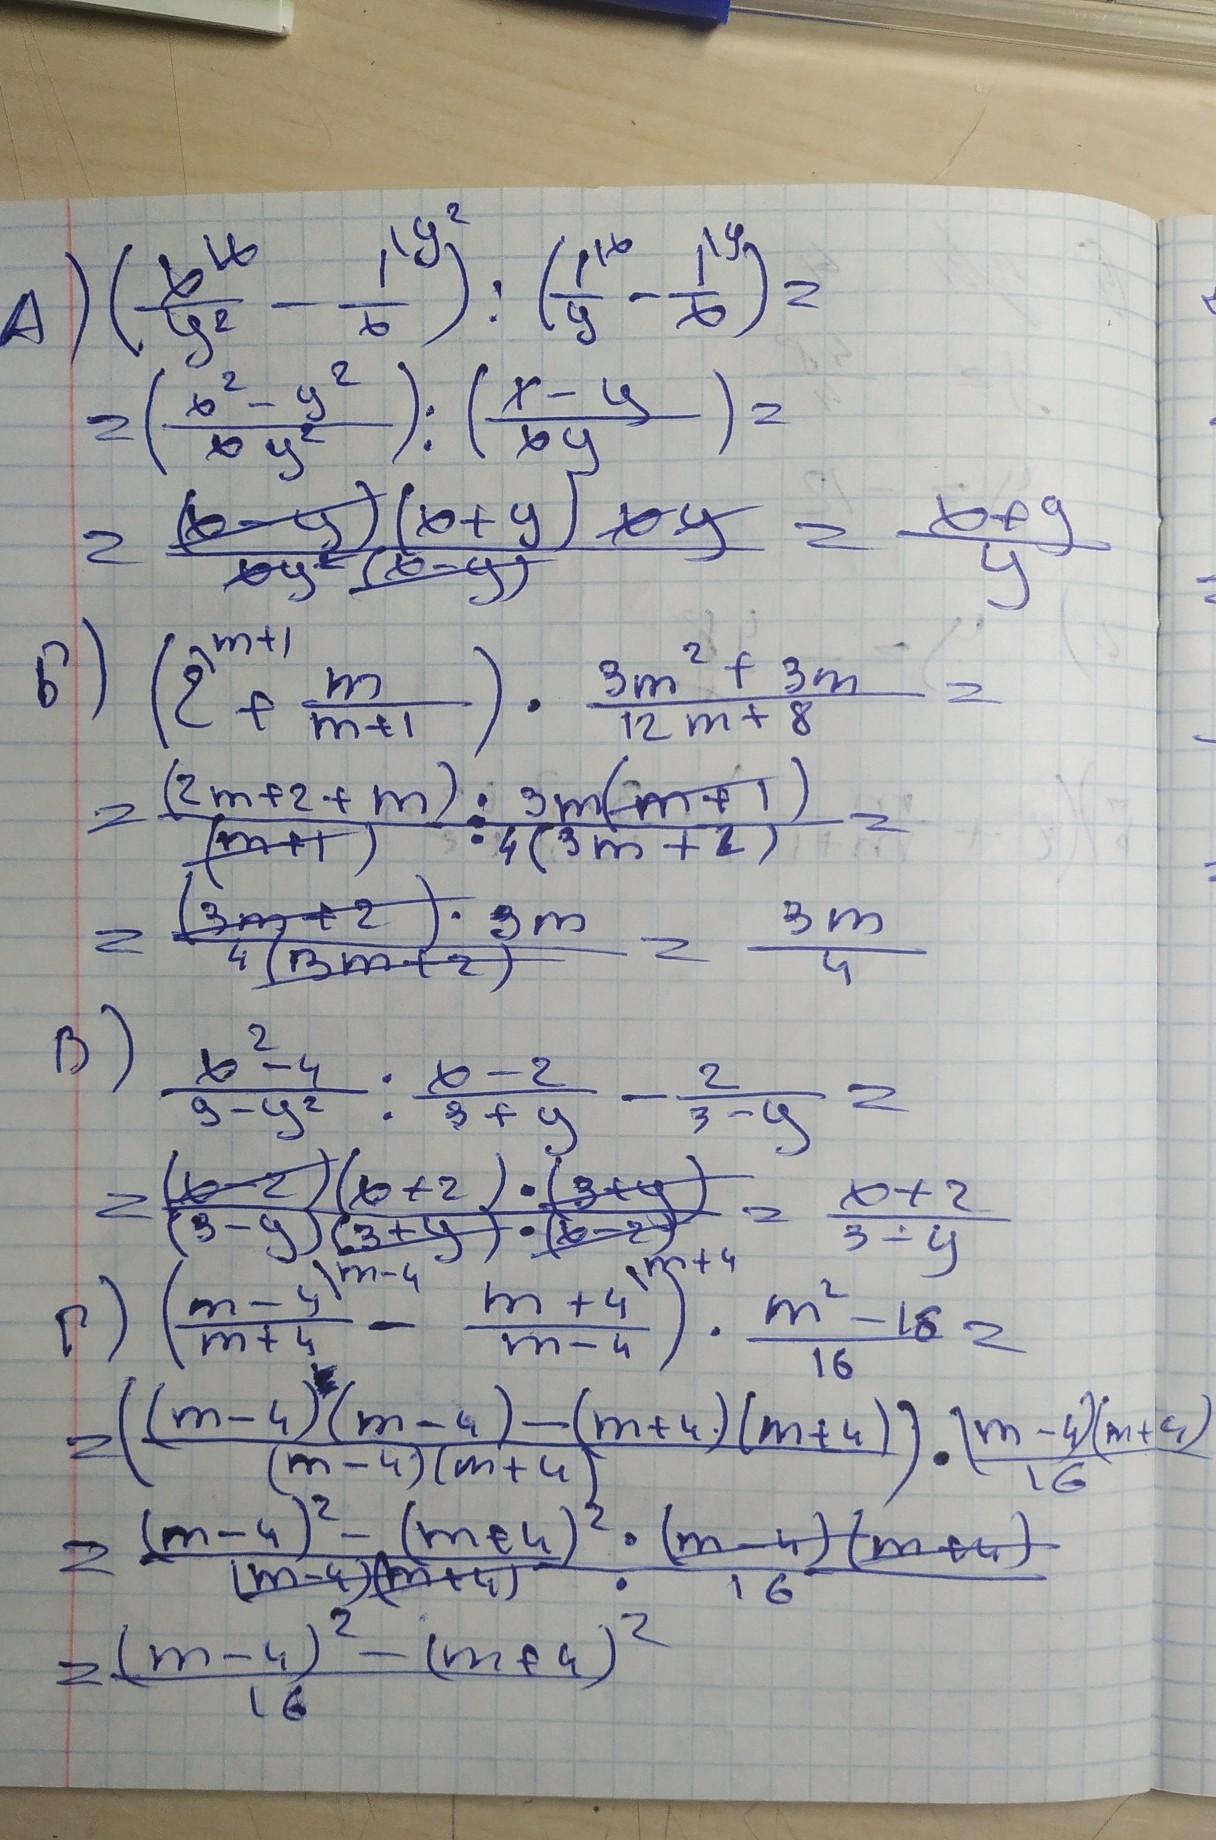 А) (x^{\x}/y² - 1^{\y²}/x) : (1^{\x}/y - 1^{\y}/x) =
= (x² - y²/xy²) : (x - y/xy) =
= (x - y)(x + y) xy/xy²(x - y) = x + y/y
Б) (2^{\m+1} + m/m+1) · 3m² + 3m/12m + 8 =
= (2m + 2 + m) · 3m(m + 1)/(m + 1) · 4(3m + 2) =
= (3m + 2) · 3m/4(3m + 2) = 3m/4
В) x² - 4/9 - y² : x - 2/3 + y - 2/3 - y =
= (x - 2)(x + 2) · (3 + y)/(3 - y)(3 + y) · (x - 2) = x + 2/3 - y
Г) (m - 4^{\m-4}/m + 4 - m + 4^{\m+4}/m - 4) · m² - 16/16 =
= ((m - 4)(m - 4) - (m + 4)(m + 4)/(m - 4)(m + 4)) · (m - 4)(m + 4)/16
= (m - 4)² - (m + 4)² · (m - 4)(m + 4)/(m - 4)(m + 4) · 16
= (m - 4)² - (m + 4)²/16